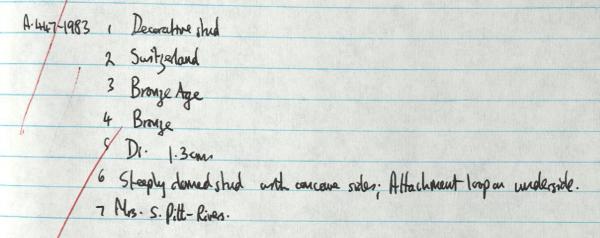 A.447-1983 1 Decorative stud
2 Switzerland
3 Bronze Age
4 Bronze
5 Di. 1.3cms
6 Steeply domed stud with concave sides; Attachment loop on underside.
7 Mrs. S. Pitt-Rivers.